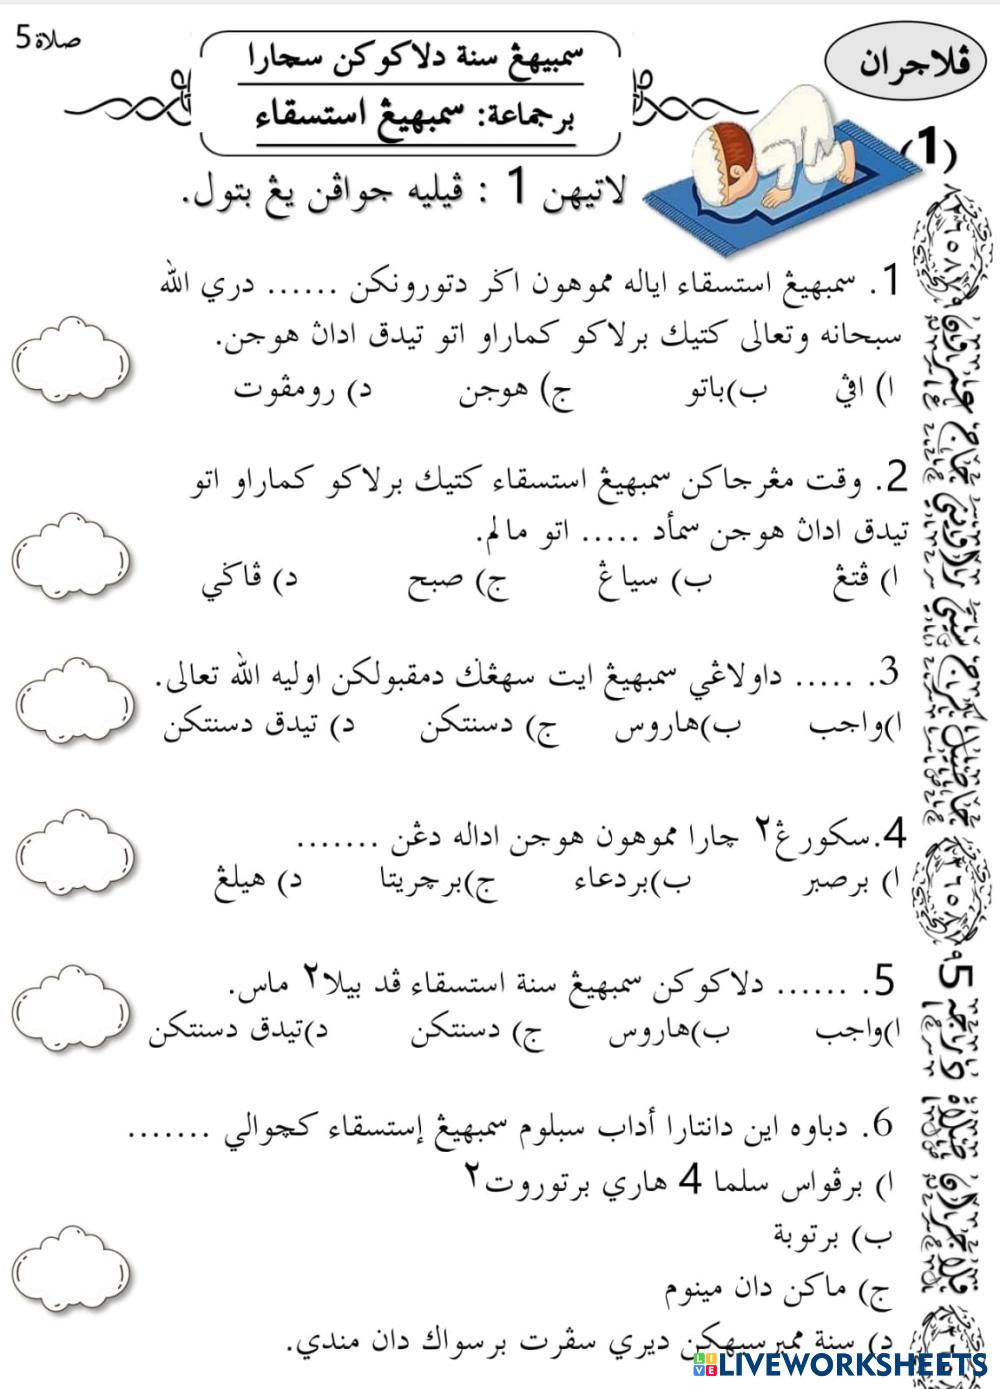 صلاة 5
ڤلاجران
(1)
سمبيهڠ سنة دلاكوكن سچارا
برجماعة: سمبهيڠ استسقاء
لاتيهن 1 : ڤيليه جواڤن يڠ بتول.
1. سمبهيڠ استسقاء اياله مموهون اݢر دتورونكن ...... دري الله
سبحانه وتعالى كتيك برلاكو كماراو اتو تيدق اداڽ هوجن.
ا) اڤي ب)باتو ج) هوجن د) رومڤوت
2. وقت مڠرجاكن سمبهيڠ استسقاء كتيك برلاكو كماراو اتو
تيدق اداڽ هوجن سمأد ..... اتو مالم.
ا) ڤتڠ ب) سياڠ ج) صبح د) ڤاݢي
3. ..... داولاڠي سمبهيڠ ايت سهڠݢ دمقبولكن اوليه الله تعالى.
ا)واجب ب)هاروس ج) دسنتكن د) تيدق دسنتكن
4.سكورڠ٢ چارا مموهون هوجن اداله دڠن .......
ا) برصبر ب)بردعاء ج)برچريتا د) هيلڠ
5. ...... دلاكوكن سمبهيڠ سنة استسقاء ڤد بيلا٢ ماس.
ا)واجب ب)هاروس ج) دسنتكن د)تيدق دسنتكن
6. دباوه اين دانتارا أداب سبلوم سمبهيڠ إستسقاء كچوالي .......
ا) برڤواس سلما 4 هاري برتوروت٢
ب) برتوبة
ج) ماكن دان مينوم
د) سنة ممبرسيهكن ديري سڤرت برسواك دان مندي.
LIVEWORKSHEETS